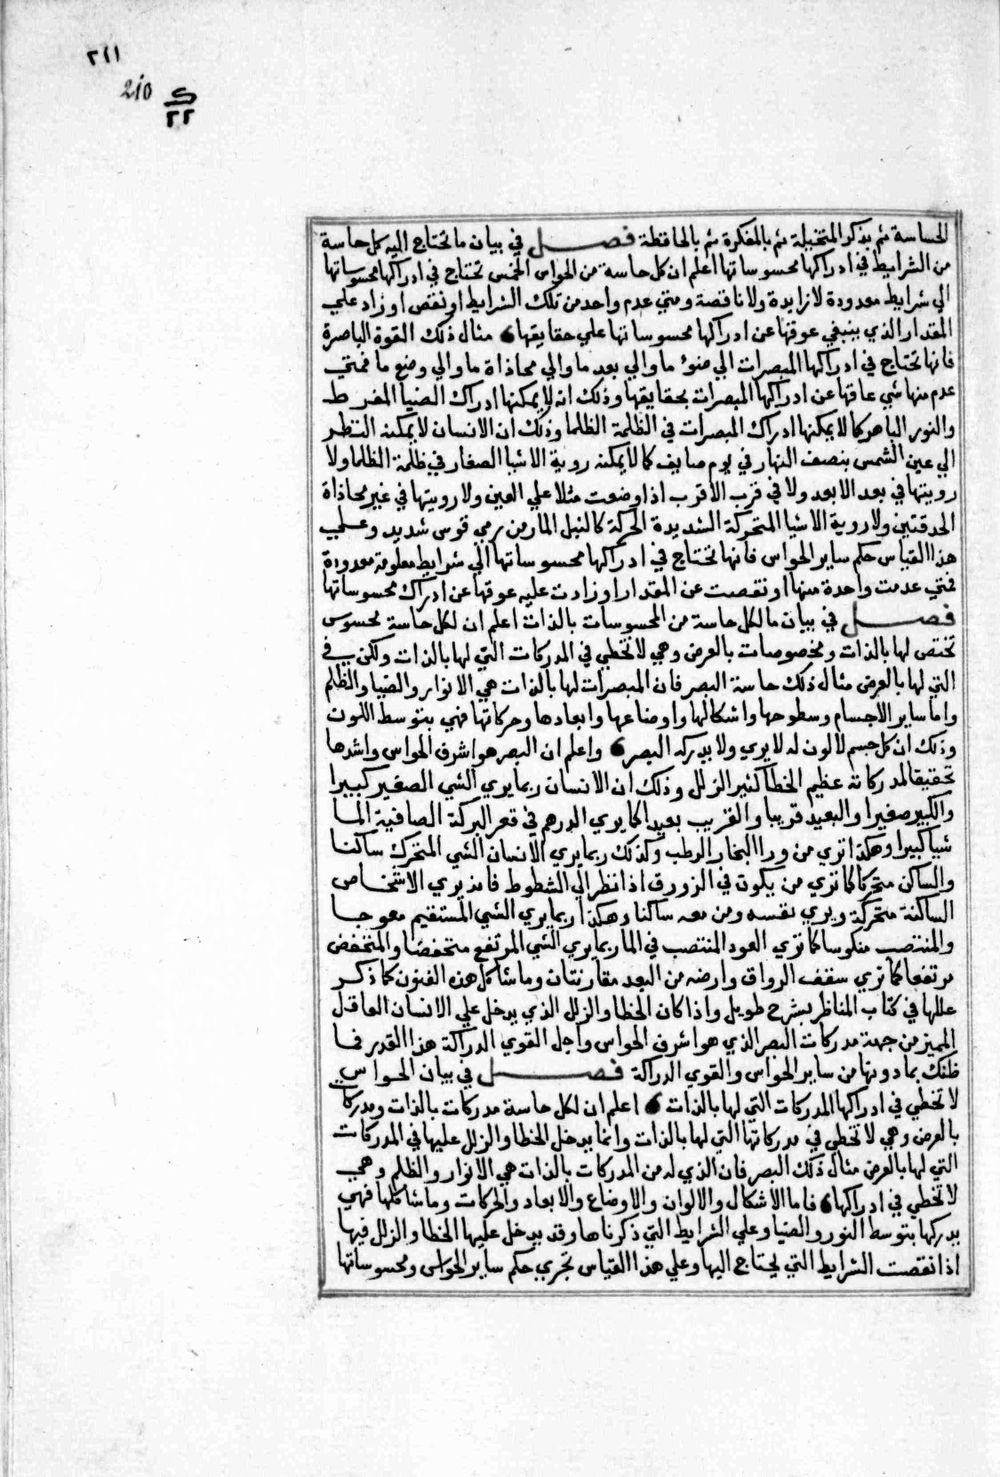 ٢١١
210 ک
٢٢
الحساسة ثم بذكر المتخيلة ثم بالمفكرة ثم بالحافظة فصل في بيان ما تحتاج اليه كل حاسة
من الشرايط في ادراكها محسوساتها اعلم ان كل حاسة من الحواس الخمس تحتاج في ادراكها محسوساتها
الي شرايط معدودة لا زايدة ولا ناقصة ومتي عدم واحد من تلك الشرايط او نقص او زاد علي
المقدار الذي ينبغي عوقها عن ادراكها محسوساتها علي حقايقها مثال ذلك القوة الباصرة
فانها تحتاج في ادراكها المبصرات الي ضوء ما والي بعد ما والي محاذاة ما والي وضع ما فمتي
عدم منها شي عاقها عن ادراكها المبصرات بحقايقها وذلك انه لا يمكنها ادراك الضيا المفرط
والنور الباهر كما لا يمكنها ادراك المبصرات في الظلمة الظلما وذلك ان الانسان لا يمكنه النظر
الي عين الشمس بنصف النهار في يوم صايف كما لا يمكنه روية الاشيا الصغار في ظلمة الظلما ولا
رويتها في بعد الابعد ولا في قرب الاقرب اذا وضعت مثلا علي العين ولا رويتها في غير محاذاة
الحدقتين ولا روية الاشيا المتحركة الشديدة الحركة كالنبل المار من رمي قوس شديد وعلي
هذا القياس حكم ساير الحواس فانها تحتاج في ادراكها محسوساتها الي شرايط معلومة معدودة
فمتي عدمت واحدة منها او نقصت عن المقدار او زادت عليه عوقها عن ادراك محسوساتها
فصل في بيان ما لكل حاسة من المحسوسات بالذات اعلم ان لكل حاسة محسوس
تختص لها بالذات ومخصوصات بالعرض وهي لا تخطي في المدركات التي لها بالذات ولكن في
التي لها بالعرض مثال ذلك حاسة البصر فان المبصرات لها بالذات هي الانوار والضيا والظلم
واما ساير الاجسام وسطوحها واشكالها واوضاعها وابعادها وحركاتها فهي بتوسط اللون
وذلك ان كل جسم لا لون له لا يري ولا يدركه البصر واعلم ان البصر هو اشرف الحواس واشدها
تحقيقا لمدركاته عظيم الخطا كثير الزلل وذلك ان الانسان ربما يري الشي الصغير كبيرا
والكبير صغيرا والبعيد قريبا والقريب بعيدا كما يري الدرهم في قعر البركة الصافية الما
شيا كبيرا وهكذا تري من ورا البخار الرطب وكذلك ربما يري الانسان الشي المتحرك ساكنا
والساكن متحركا كما تري من يكون في الزورق اذا نظر الي الشطوط فانه يري الاشخاص
الساكنة متحركة ويري نفسه ومن معه ساكنا وهكذا ربما يري الشي المستقيم معوجا
والمنتصب منكوسا كما تري العود المنتصب في الما ربما يري الشي المرتفع منخفضا والمنخفض
مرتفعا كما تري سقف الرواق وارضه من البعد مقارنتان وما شاكل هذه الفنون كما ذكر
عللها في كتاب المناظر بشرح طويل واذا كان الخطا والزلل الذي يدخل علي الانسان العاقل
المميز من جهة مدركات البصر الذي هو اشرف الحواس واجل القوي الدراكة هذا القدر فما
ظنك بما دونها من ساير الحواس والقوي الدراكة فصل في بيان الحواس
لا تخطي في ادراكها المدركات التي لها بالذات اعلم ان لكل حاسة مدركات بالذات ومدركات
بالعرض وهي لا تخطي في مدركاتها التي لها بالذات وانما يدخل الخطا والزلل عليها في المدركات
التي لها بالعرض مثال ذلك البصر فان الذي له من المدركات بالذات هي الانوار والظلم وهي
لا تخطي في ادراكها فاما الاشكال والالوان والاوضاع والابعاد والحركات وما شاكلها فهي
يدركها بتوسط النور والضيا وعلي الشرايط التي ذكرناها وقد يدخل عليها الخطا والزلل فيها
اذا نقصت الشرايط التي يحتاج اليها وعلي هذا القياس تجري حكم ساير الحواس ومحسوساتها